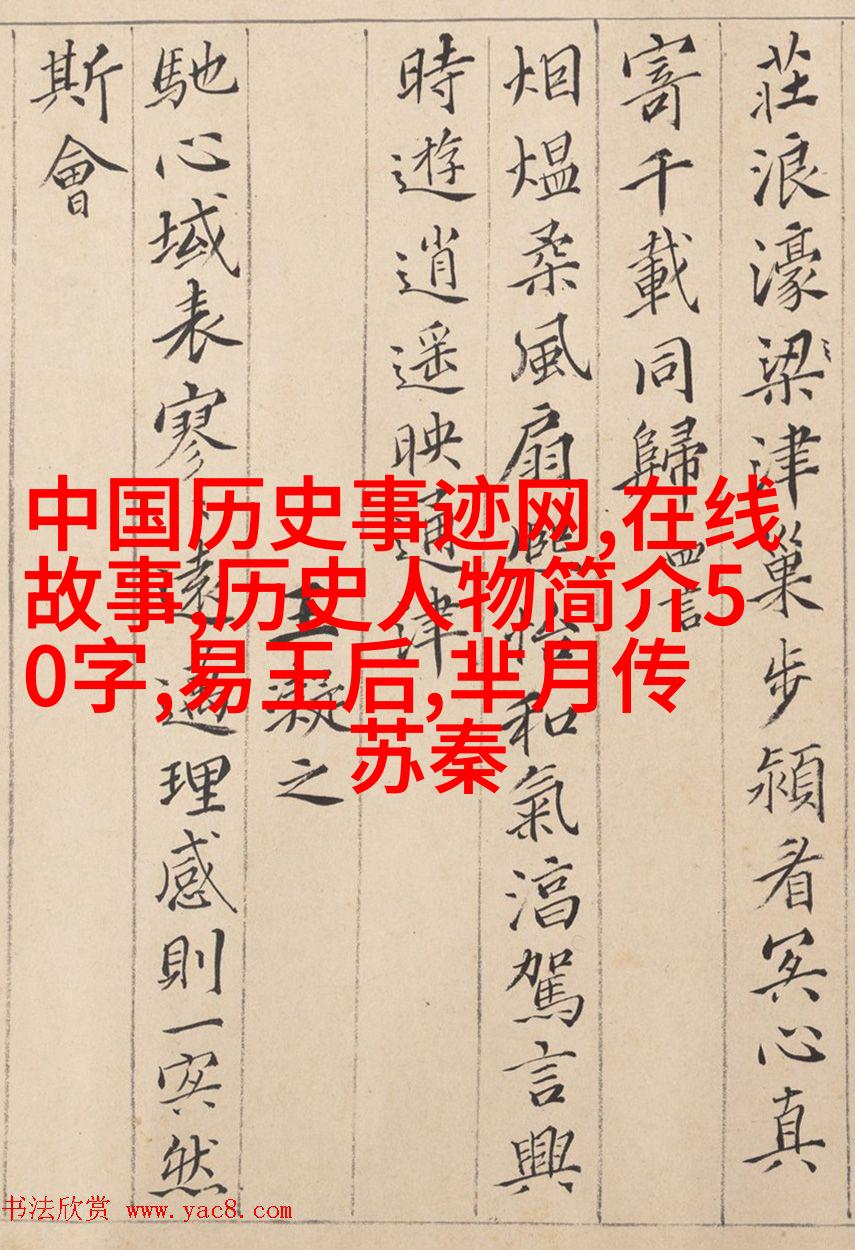 莊浪濠梁〻津巢步潁看冥心真
寄千載同歸 四言
烟熅柔風扇熙怡和氣淳駕言興
時遊逍遥映通津
王凝之
馳心域表寥〻遠邁理感則一冥然
斯會
中国历史事迹网,在线
故事,历史人物简介5
0字,易王后,芈月传
苏秦
书法欣赏 www.yac8.com